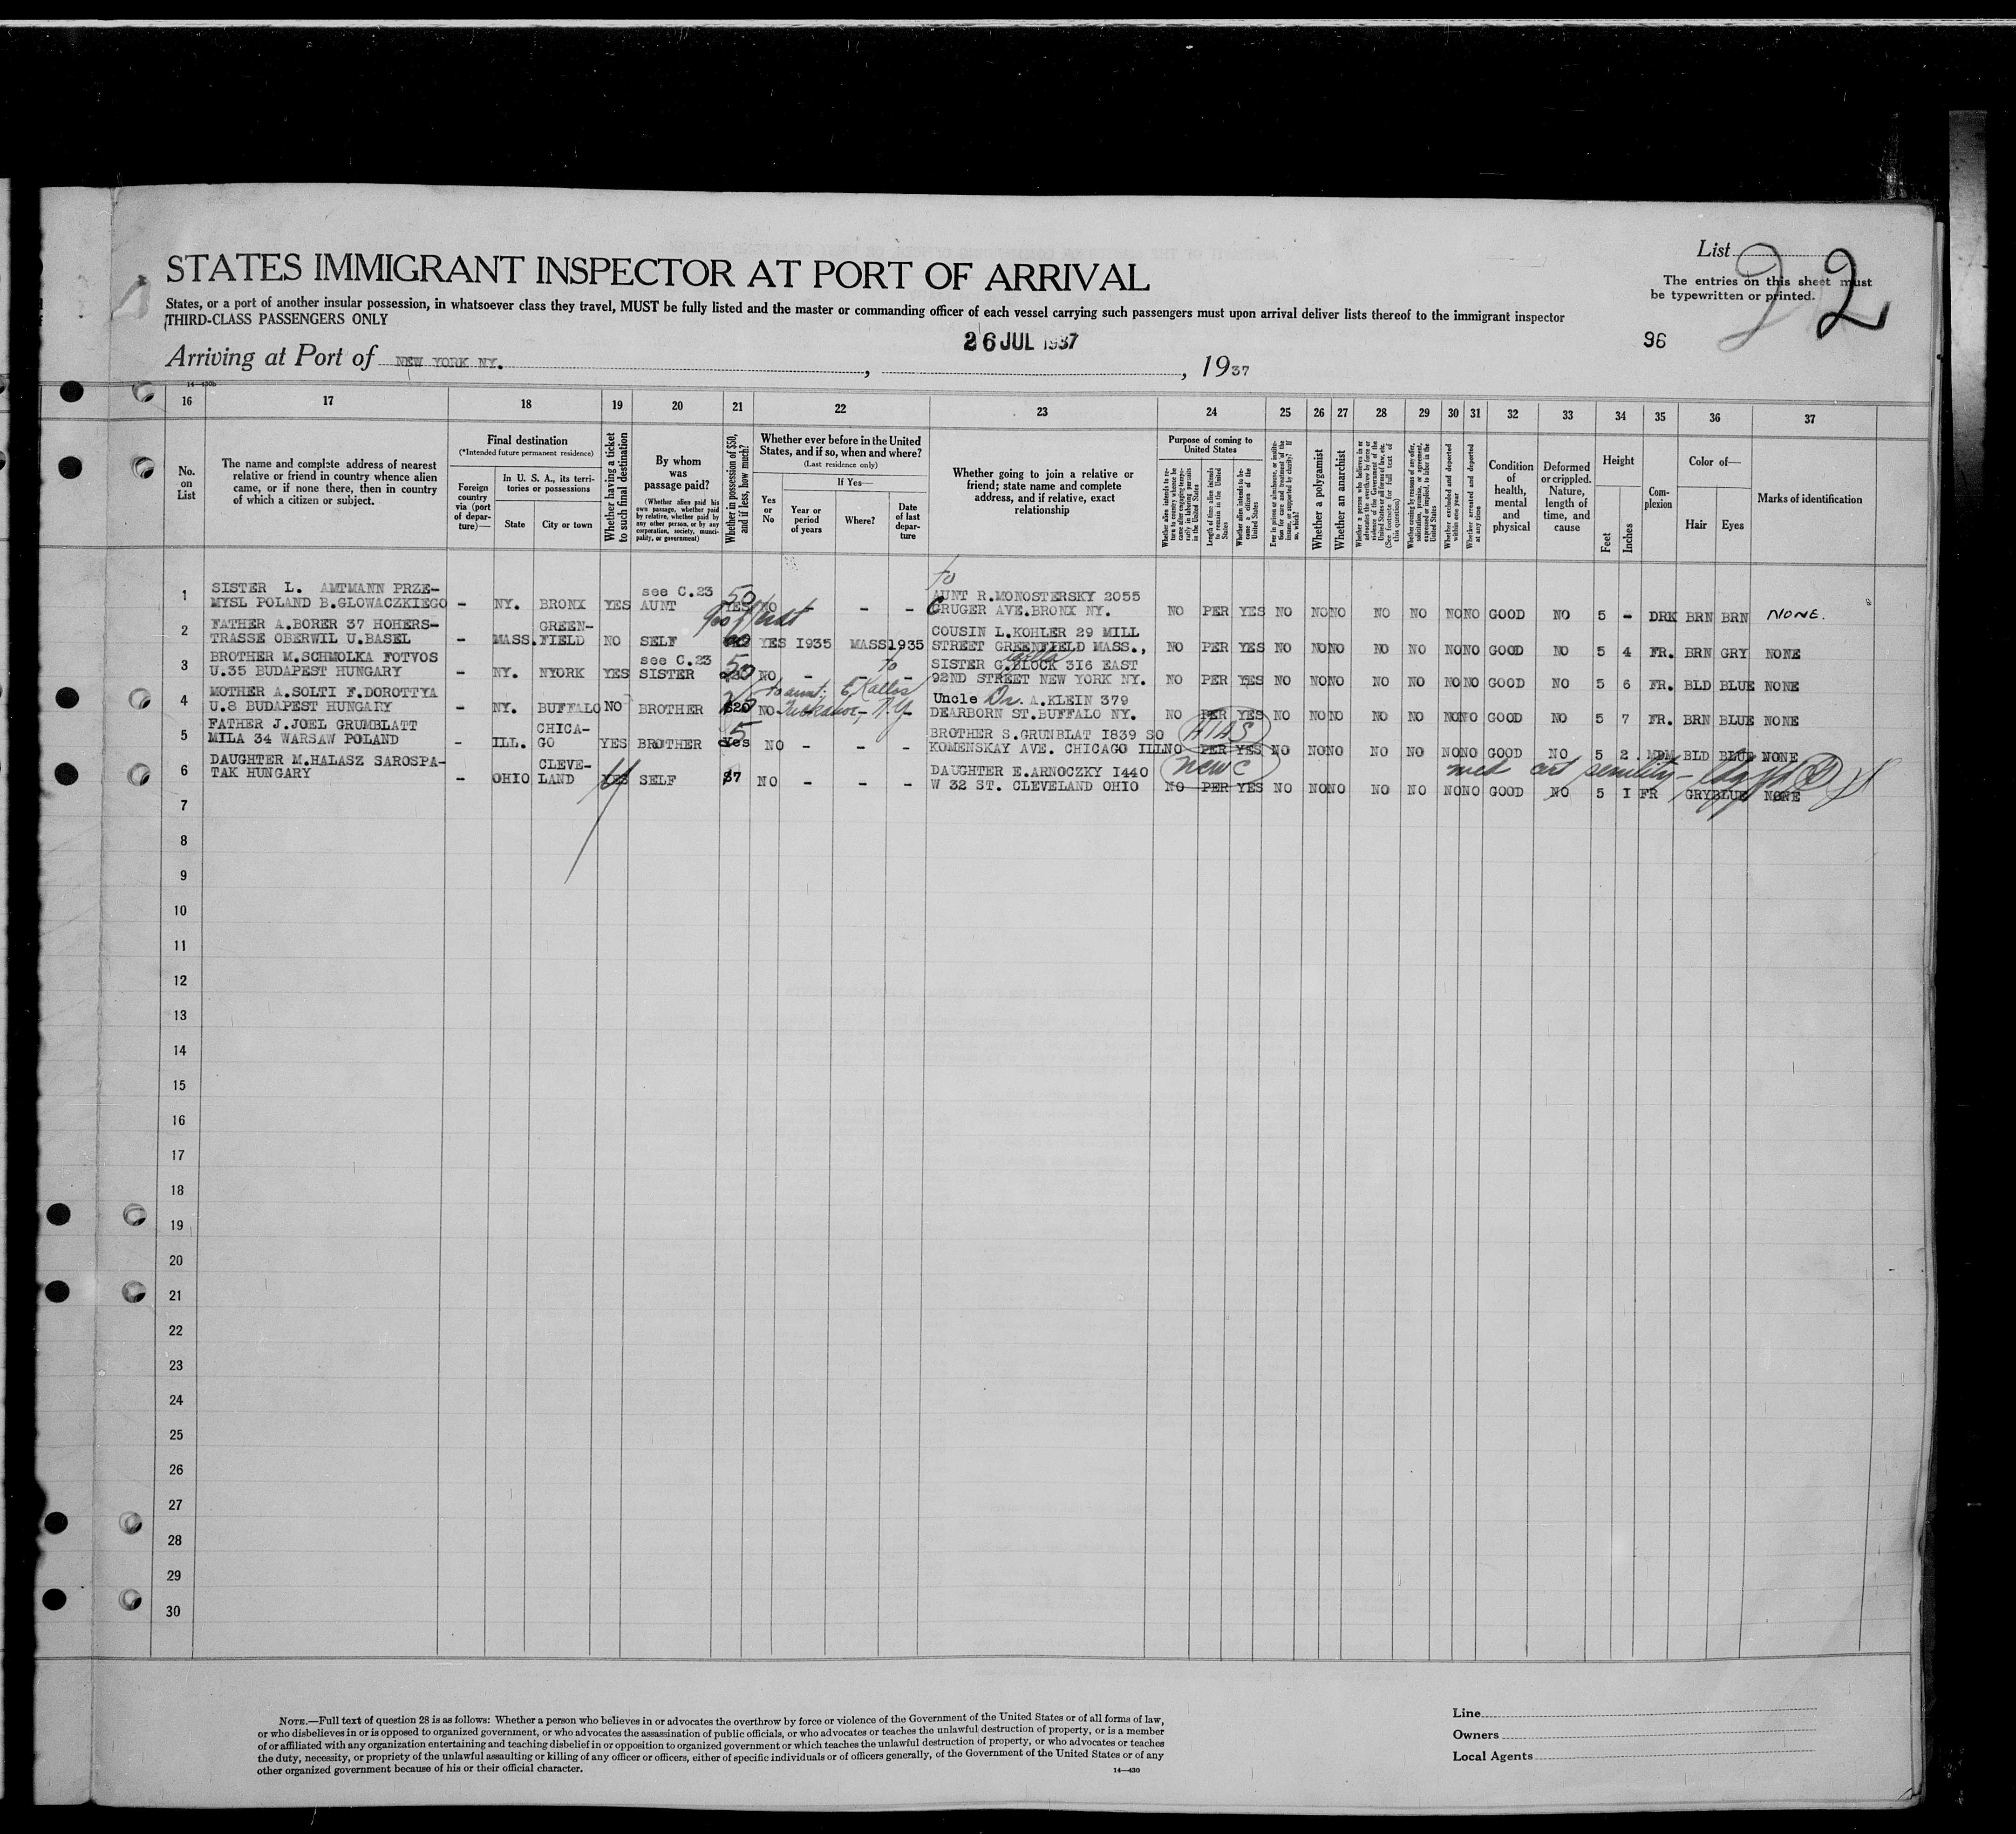 STATES IMMIGRANT INSPECTOR AT PORT OF ARRIVAL
List
2
The entries on this sheet must
be typewritten or printed.
States, or a port of another insular possession, in whatsoever class they travel, MUST be fully listed and the master or commanding officer of each vessel carrying such passengers must upon arrival deliver lists thereof to the immigrant inspector
THIRD-CLASS PASSENGERS ONLY
26 JUL 1937
96
Arriving at Port of NEW YORK NY. , , 1937
14—430b
16 17 18 19 20 21 22 23 24 25 26 27 28 29 30 31 32 33 34 35 36 37
No. on List
The name and complete address of nearest relative or friend in country whence alien came, or if none there, then in country of which a citizen or subject.
Final destination
(*Intended future permanent residence)
Foreign country via (port of departure)—
In U. S. A., its territories or possessions
State
City or town
Whether having a ticket to such final destination
By whom was passage paid?
(Whether alien paid his own passage, whether paid by relative, whether paid by any other person, or by any corporation, society, municipality, or government)
Whether in possession of $50, and if less, how much?
Whether ever before in the United States, and if so, when and where?
(Last residence only)
Yes or No
If Yes—
Year or period of years
Where?
Date of last departure
Whether going to join a relative or friend; state name and complete address, and if relative, exact relationship
Purpose of coming to United States
Whether alien intends to return to country whence he came after engaging temporarily in laboring pursuits in the United States
Length of time alien intends to remain in the United States
Whether alien intends to become a citizen of the United States
Ever in prison or almshouse, or institution for care and treatment of the insane, or supported by charity? If so, which?
Whether a polygamist
Whether an anarchist
Whether a person who believes in or advocates the overthrow by force or violence of the Government of the United States or all forms of law, etc. (See footnote for full text of this question)
Whether coming by reason of any offer, solicitation, promise, or agreement, expressed or implied, to labor in the United States
Whether excluded and deported within one year
Whether arrested and deported at any time
Condition of health, mental and physical
Deformed or crippled. Nature, length of time, and cause
Height
Feet
Inches
Complexion
Color of—
Hair
Eyes
Marks of identification
1 SISTER L. AMTMANN PRZE- see C.23 50 to AUNT R.MONOSTERSKY 2055
MYSL POLAND B.GLOWACZKIEGO – NY. BRONX YES AUNT YES NO – – – CRUGER AVE.BRONX NY. NO PER YES NO NO NO NO NO NO NO GOOD NO 5 – DRK BRN BRN NONE.
2 FATHER A.BORER 37 HOHERS- GREEN- COUSIN L.KOHLER 29 MILL
TRASSE OBERWIL U.BASEL – MASS. FIELD NO SELF YES 1935 MASS 1935 STREET GREENFIELD MASS., NO PER YES NO NO NO NO NO NO NO GOOD NO 5 4 FR. BRN GRY NONE
3 BROTHER M.SCHMOLKA FOTVOS see C.23 50 to SISTER G.BLOCK 316 EAST
U.35 BUDAPEST HUNGARY – NY. NYORK YES SISTER NO – – – 92ND STREET NEW YORK NY. NO PER YES NO NO NO NO NO NO NO GOOD NO 5 6 FR. BLD BLUE NONE
4 MOTHER A.SOLTI F.DOROTTYA to aunt: E. Kallos Uncle Dr. A.KLEIN 379
U.8 BUDAPEST HUNGARY – NY. BUFFALO NO BROTHER $20 NO N.Y. DEARBORN ST.BUFFALO NY. NO PER YES NO NO NO NO NO NO NO GOOD NO 5 7 FR. BRN BLUE NONE
5 FATHER J.JOEL GRUMBLATT CHICA- 5 BROTHER S.GRUNBLAT 1839 SO HIAS
MILA 34 WARSAW POLAND – ILL. GO YES BROTHER Yes NO – – – KOMENSKAY AVE. CHICAGO ILL NO PER YES NO NO NO NO NO NO NO GOOD NO 5 2 MDM BLD BLUE NONE
6 DAUGHTER M.HALASZ SAROSPA- CLEVE- DAUGHTER E.ARNOCZKY 1440 NCWC med cert senility
TAK HUNGARY – OHIO LAND YES SELF $7 NO – – – W 32 ST. CLEVELAND OHIO NO PER YES NO NO NO NO NO NO NO GOOD NO 5 1 FR GRY BLUE NONE
7
8
9
10
11
12
13
14
15
16
17
18
19
20
21
22
23
24
25
26
27
28
29
30
NOTE.—Full text of question 28 is as follows: Whether a person who believes in or advocates the overthrow by force or violence of the Government of the United States or of all forms of law,
or who disbelieves in or is opposed to organized government, or who advocates the assassination of public officials, or who advocates or teaches the unlawful destruction of property, or is a member
of or affiliated with any organization entertaining and teaching disbelief in or opposition to organized government or which teaches the unlawful destruction of property, or who advocates or teaches
the duty, necessity, or propriety of the unlawful assaulting or killing of any officer or officers, either of specific individuals or of officers generally, of the Government of the United States or of any
other organized government because of his or their official character.
14—430
Line
Owners
Local Agents